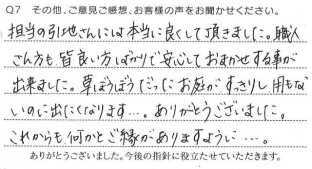 Q7 その他、ご意見ご感想、お客様の声をお聞かせください。
担当の引地さんには本当に良くして頂きました。職人
さん方も皆良い方ばかりで安心しておまかせする事が
出来ました。草ぼうぼうだったお庭がすっきりし用もな
いのに出たくなります…。ありがとうございました。
これからも何かとご縁がありますように…。
ありがとうございました。今後の指針に役立たせていただきます。